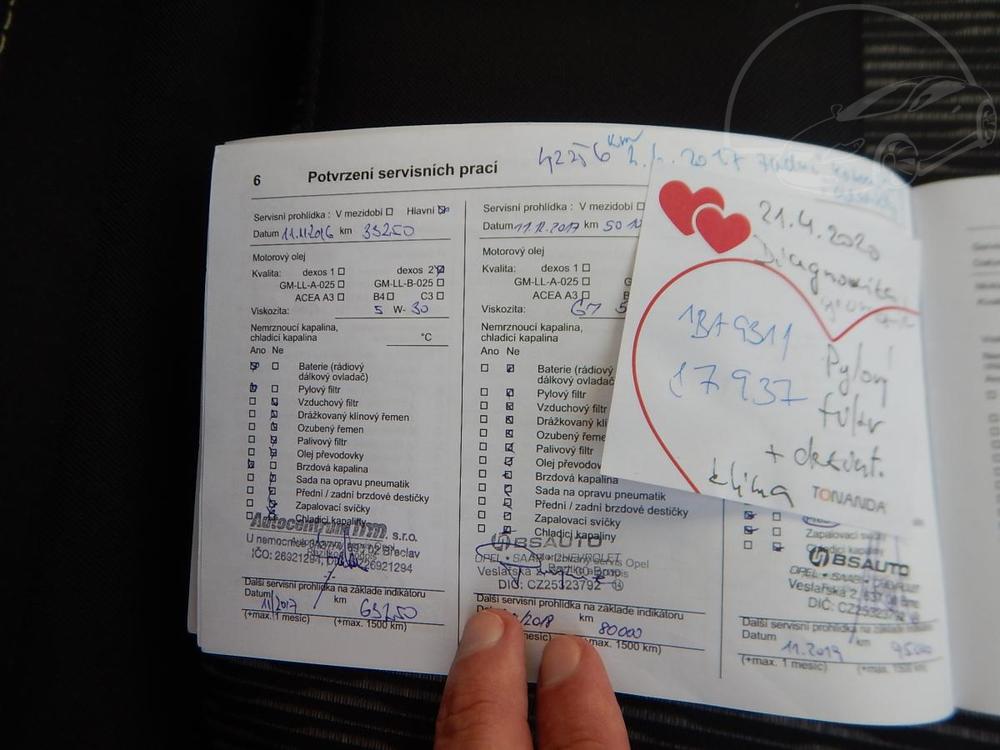 42256 km 2017
6 Potvrzení servisních prací
Servisní prohlídka : V mezidobí Hlavní
Datum 11.11.2016 km 33250
Motorový olej
Kvalita: dexos 1 dexos 2
GM-LL-A-025 GM-LL-B-025
ACEA A3 B4 C3
Viskozita: 5 W- 30
Nemrznoucí kapalina,
chladicí kapalina °C
Ano Ne
Baterie (rádiový
dálkový ovladač)
Pylový filtr
Vzduchový filtr
Drážkovaný klínový řemen
Ozubený řemen
Palivový filtr
Olej převodovky
Brzdová kapalina
Sada na opravu pneumatik
Přední / zadní brzdové destičky
Zapalovací svíčky
Chladicí kapaliny
Autocentrum s.r.o.
U nemocnice Břeclav
IČO: 26321294,
Další servisní prohlídka na základě indikátoru
Datum 11/2017 km 63250
(+max. 1 měsíc) (+max. 1500 km)
Servisní prohlídka : V mezidobí
Datum 11.12.2017 km
Kvalita: dexos 1
GM-LL-A-025
ACEA A3
Viskozita:
Nemrznoucí kapalina,
chladicí kapalina
Ano Ne
Baterie (rádiový
dálkový ovladač)
Pylový filtr
Vzduchový filtr
Drážkovaný
Ozubený
Palivový filtr
Olej
Brzdová kapalina
Sada na opravu pneumatik
Přední / zadní brzdové destičky
Zapalovací svíčky
Chladicí kapaliny
BSAUTO
OPEL • SAAB • CHEVROLET
Veslařská
DIČ: CZ25323792
Další servisní prohlídka na základě indikátoru
/2018 km 80000
1 měsíc) 1500 km)
21.4.2020
Diagnostika
Pylový
filtr
+ dezinf.
klima
TONANDA
Zapalovací
BSAUTO
OPEL • SAAB •
Veslařská 2,
DIČ:
Další servisní prohlídka na základě
Datum 11.2019 km 95000
(+max. 1 měsíc) (+max. 1500 km)